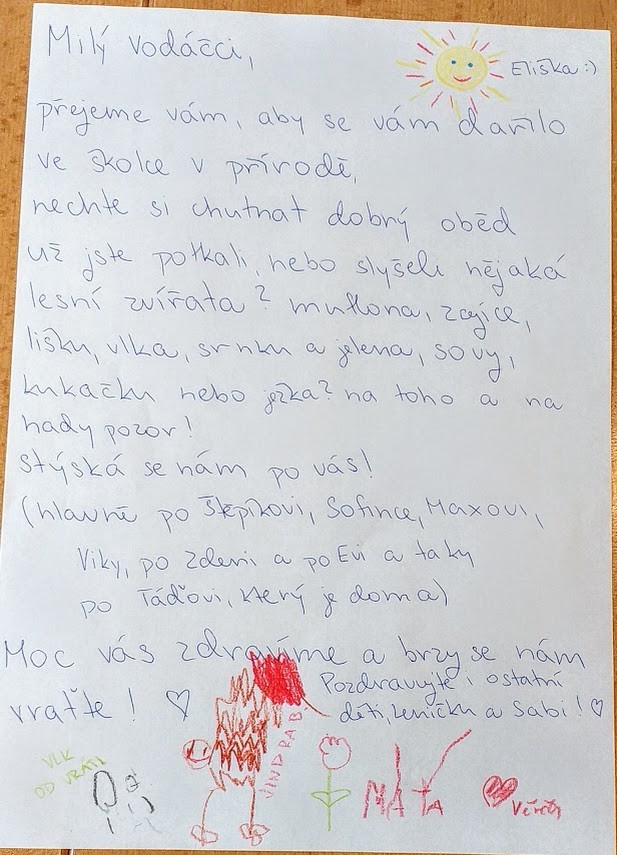 Milý vodáčci,
Eliška :)
přejeme vám, aby se vám dařilo
ve školce v přírodě,
nechte si chutnat dobrý oběd
už jste potkali, nebo slyšeli nějaká
lesní zvířata? muflona, zajíce,
lišku, vlka, srnku a jelena, sovy,
kukačku nebo ježka? na toho a na
hady pozor!
stýská se nám po vás!
(hlavně po Štěpíkovi, Sofince, Maxovi,
Viky, po Zdeni a po Evi a taky
po Táďovi, který je doma)
Moc vás zdravíme a brzy se nám
vraťte! ♡
Pozdravujte i ostatní
děti, Leničku a Sabi! ♡
VLK
OD VRÁTI
JINDRA B
MÁŤA